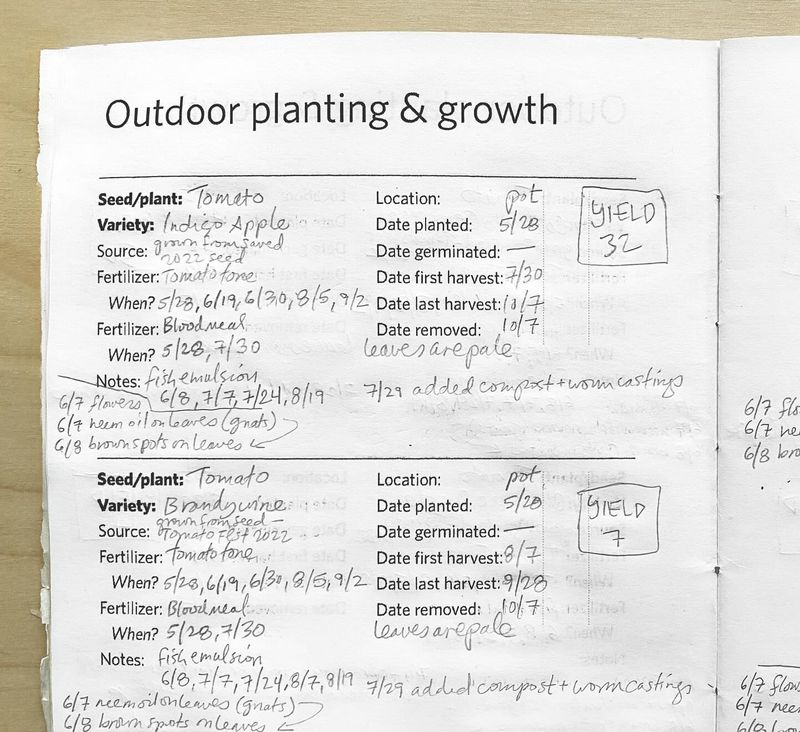 Outdoor planting & growth
Seed/plant: Tomato
Variety: Indigo Apple
Source: grown from saved
2022 seed
Fertilizer: Tomatotone
When? 5/28, 6/19, 6/30, 8/5, 9/2
Fertilizer: Bloodmeal
When? 5/28, 7/30
Notes: fish emulsion
6/8, 7/7, 7/24, 8/19
6/7 flowers
6/7 neem oil on leaves (gnats)
6/8 brown spots on leaves
Location: pot
Date planted: 5/28
Date germinated: —
Date first harvest: 7/30
Date last harvest: 10/7
Date removed: 10/7
leaves are pale
7/29 added compost + worm castings
YIELD
32
Seed/plant: Tomato
Variety: Brandywine
Source: grown from seed —
Tomato Fest 2022
Fertilizer: Tomatotone
When? 5/28, 6/19, 6/30, 8/5, 9/2
Fertilizer: Bloodmeal
When? 5/28, 7/30
Notes: fish emulsion
6/8, 7/7, 7/24, 8/7, 8/19
6/7 neem oil on leaves (gnats)
6/8 brown spots on leaves
Location: pot
Date planted: 5/28
Date germinated: —
Date first harvest: 8/7
Date last harvest: 9/28
Date removed: 10/7
leaves are pale
7/29 added compost + worm castings
YIELD
7
6/7 flo
6/7 ne
6/8 bro
6/7 flow
6/7 nee
6/8 bro